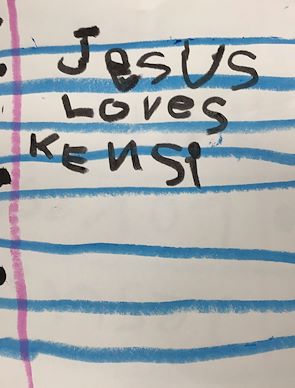 Jesus
Loves
KENSi